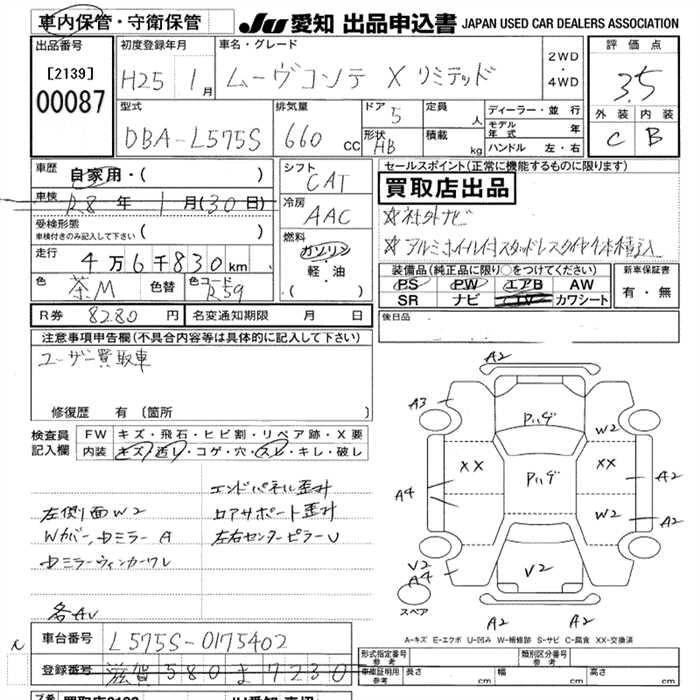 車内保管・守衛保管
JU 愛知 出品申込書 JAPAN USED CAR DEALERS ASSOCIATION
出品番号
[2139]
00087
初度登録年月
H25 1月
車名・グレード
ムーヴコンテ X リミテッド
2WD
・
4WD
評価点
3.5
外装 内装
C B
型式
DBA-L575S
排気量
660 cc
ドア
5
形状
HB
定員
人
積載
kg
ディーラー・並行
モデル年式 年
ハンドル 左・右
車歴
自家用・( )
車検
R8 年 1月(30日)
受検形態
車検付きのみ記入して下さい ( )
走行
4万6千830km
色
茶M
色替
色コード
R59
シフト
CAT
冷房
AAC
燃料
ガソリン
・
軽・油
・( )
セールスポイント(正常に機能するものに限ります)
買取店出品
☆社外ナビ
☆アルミホイール付スタッドレスタイヤ4本積込
装備品(純正品に限り○をつけてください)
PS PW エアB AW
SR ナビ TV カワシート
新車保証書
有・無
後日品
R券 8280 円
名変通知期限 月 日
注意事項申告欄(不具合内容等は具体的に記入して下さい)
ユーザー買取車
修復歴 有 〔箇所 〕
検査員
記入欄
FW キズ・飛石・ヒビ割・リペア跡・X要
内装 キズ・汚レ・コゲ・穴・スレ・キレ・破レ
エンドパネル歪み
左側面W2 ロアサポート歪み
Wカバー、ドミラー A 左右センターピラーU
ドミラーウィンカーワレ
各AU
A2
A3
Pハゲ
W2
A2
XX
Pハゲ
XX
A4
W2
A2
V2
A4
V2
スペア
A2
A2
A-キズ E-エクボ U-凹み W-補修跡 S-サビ C-腐食 XX-交換済
車台番号 L575S-0175402
登録番号 滋賀 580 ま 7230
形式指定番号
参考
類別区分番号
参考
車庫証明用
参考
長さ cm 幅 cm 高さ cm